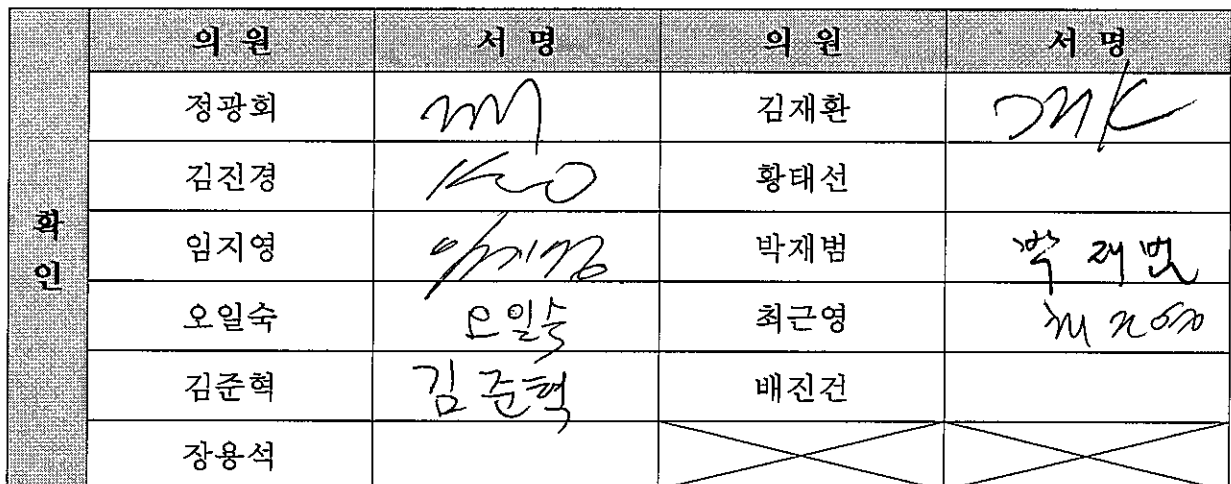 의 원 서 명 의 원 서 명
정광회 김재환
김진경 황태선
확인
임지영 임지영 박재범 박재범
오일숙 오일숙 최근영 최근영
김준혁 김준혁 배진건
장용석